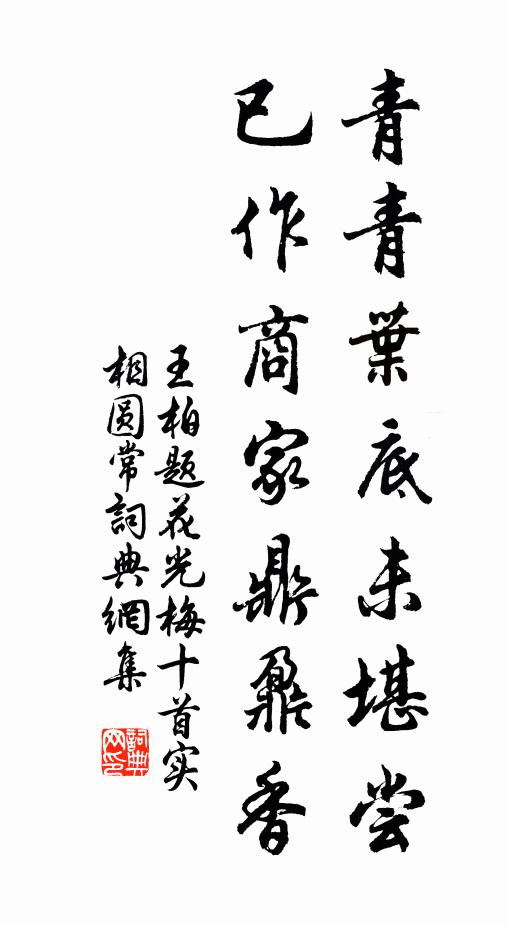 青青葉底未堪尝
已作商家鼎鼐香
王柏题花光梅十首实
相圆常詞典網集
詞典网印